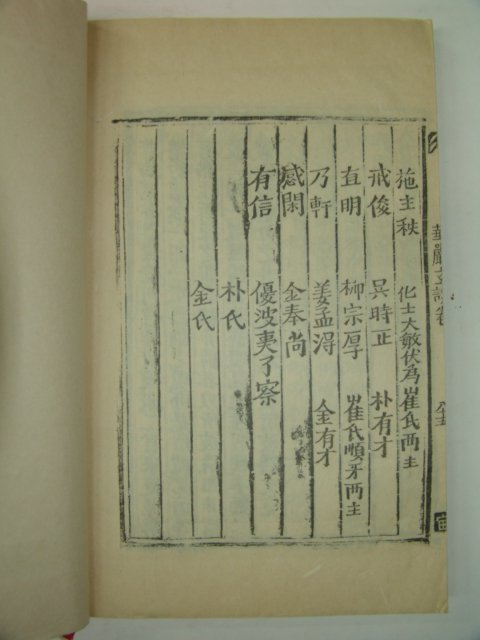 施主秩 化士大敏伏爲崔氏兩主
戒俊 吳時正 朴有才
直明 柳宗厚 崔氏順牙兩主
乃軒 姜孟淂 金有才
感閑 金奉尚
有信 優波夷了察
朴氏
金氏
華嚴